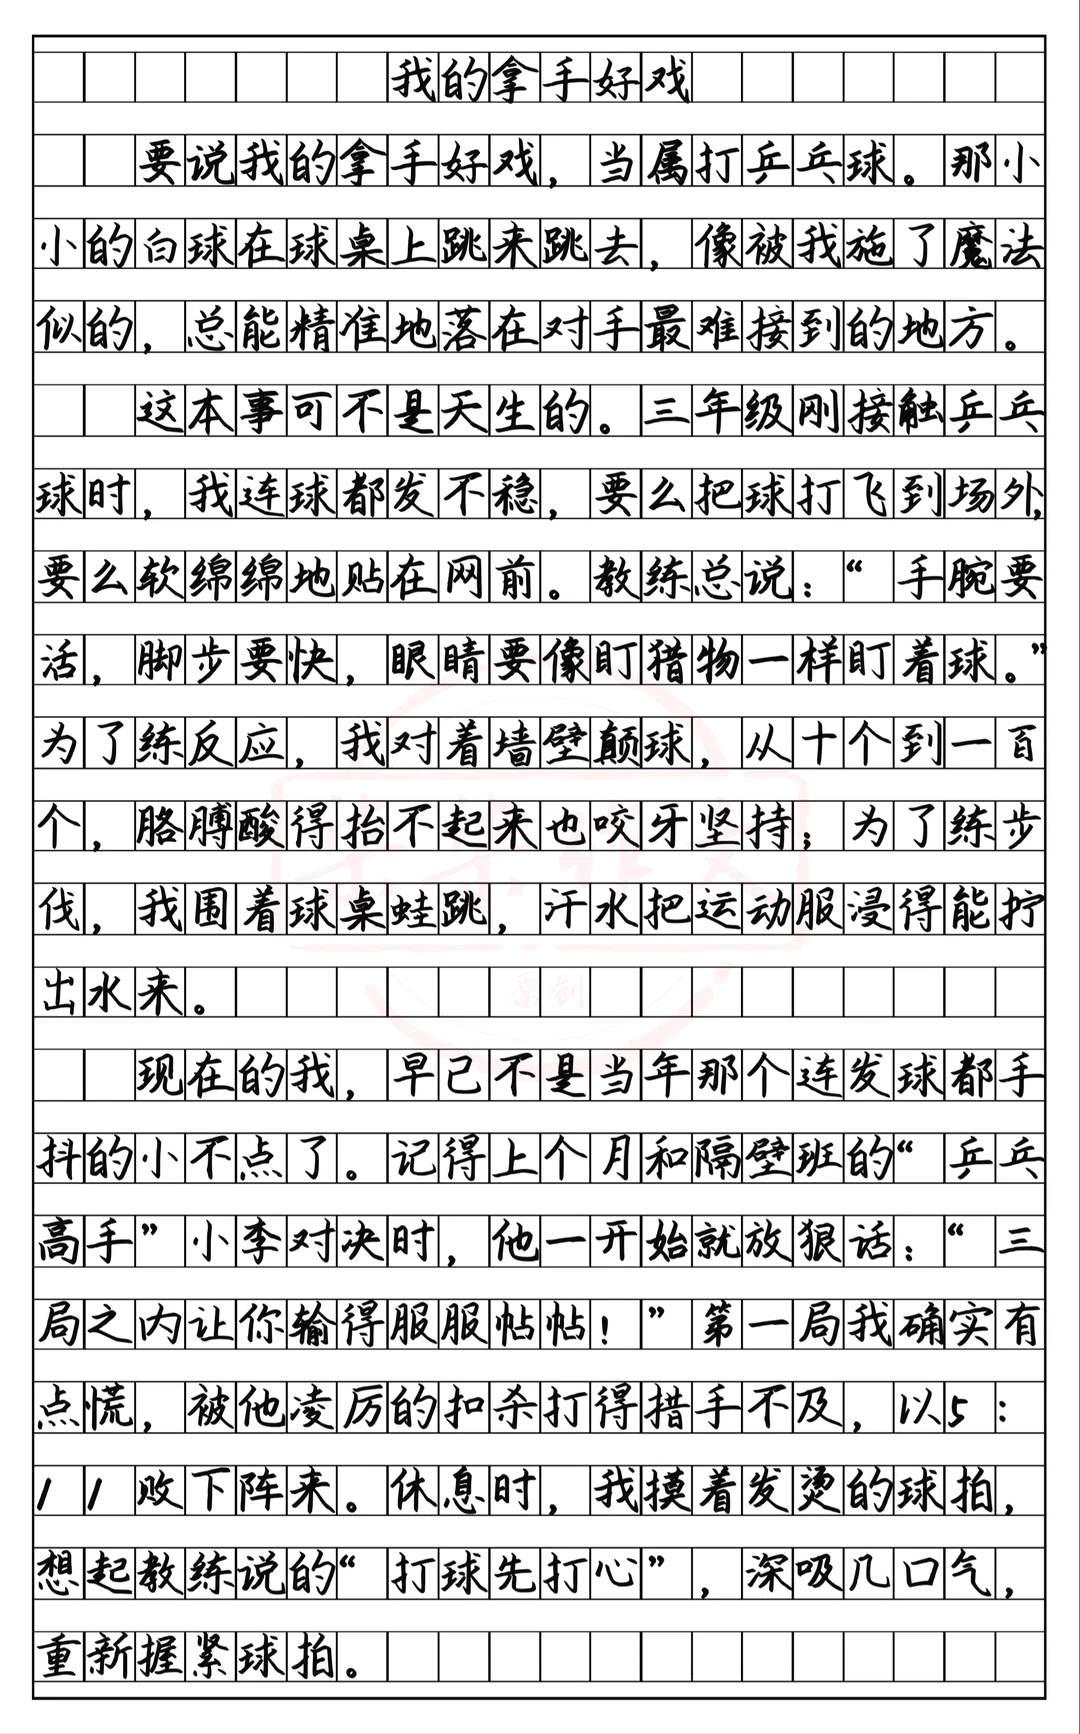 我的拿手好戏
要说我的拿手好戏，当属打乒乓球。那小
小的白球在球桌上跳来跳去，像被我施了魔法
似的，总能精准地落在对手最难接到的地方。
这本事可不是天生的。三年级刚接触乒乓
球时，我连球都发不稳，要么把球打飞到场外，
要么软绵绵地贴在网前。教练总说：“手腕要
活，脚步要快，眼睛要像盯猎物一样盯着球。”
为了练反应，我对着墙壁颠球，从十个到一百
个，胳膊酸得抬不起来也咬牙坚持；为了练步
伐，我围着球桌蛙跳，汗水把运动服浸得能拧
出水来。
原创
现在的我，早已不是当年那个连发球都手
抖的小不点了。记得上个月和隔壁班的“乒乓
高手”小李对决时，他一开始就放狠话：“三
局之内让你输得服服帖帖！”第一局我确实有
点慌，被他凌厉的扣杀打得措手不及，以5：
11败下阵来。休息时，我摸着发烫的球拍，
想起教练说的“打球先打心”，深吸几口气，
重新握紧球拍。